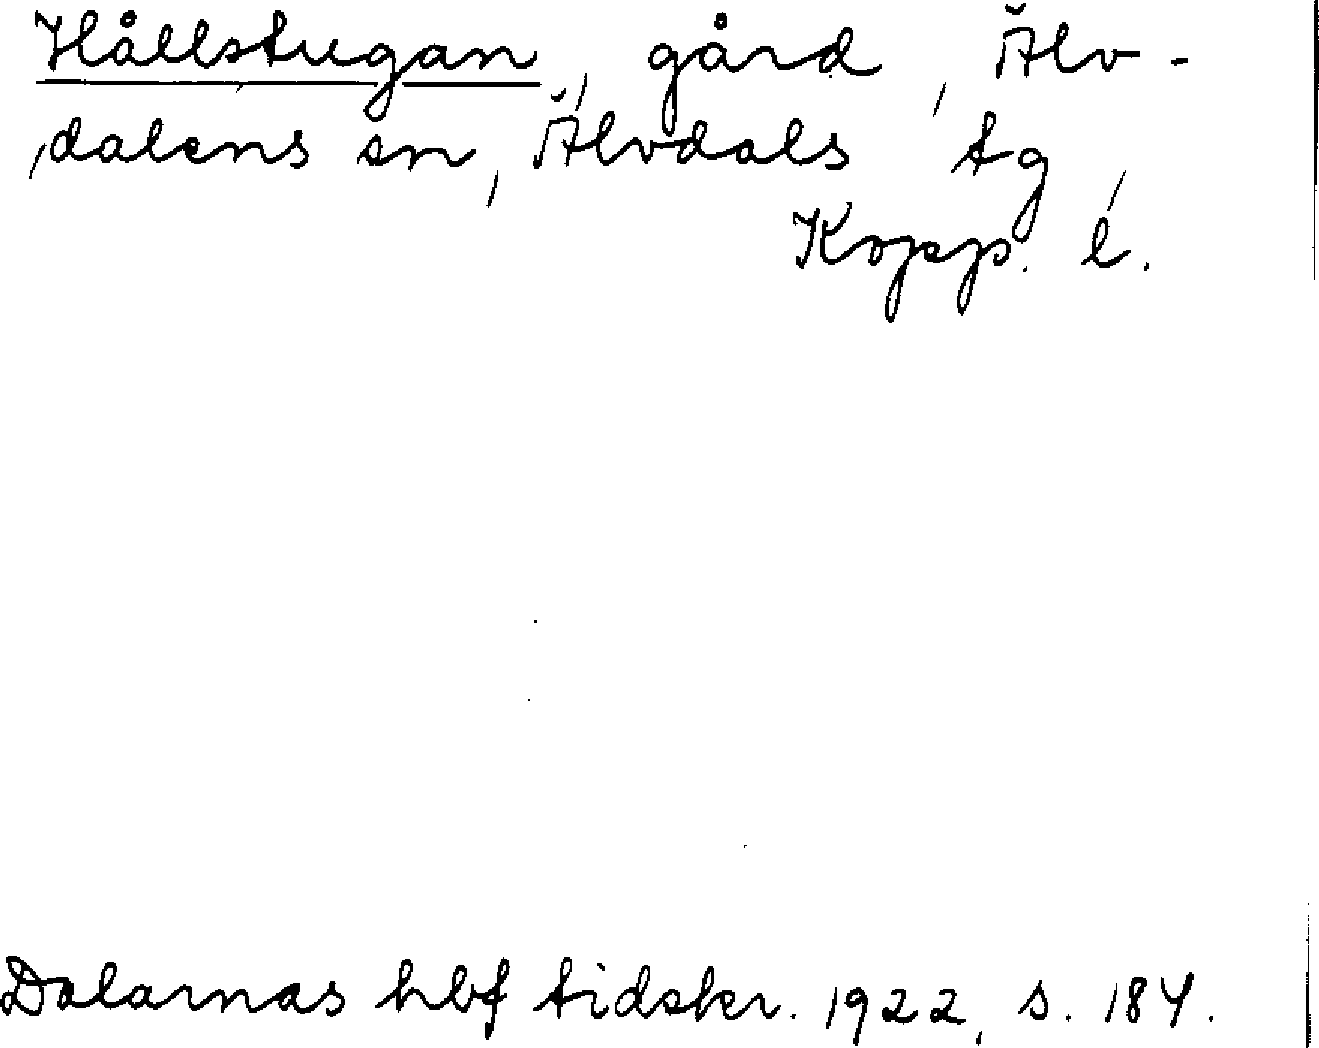 Hållstugan, gård, Älv-
dalens sn, Älvdals tg,
Kopp. l.
Dalarnas hbf tidskr. 1922, s. 184.